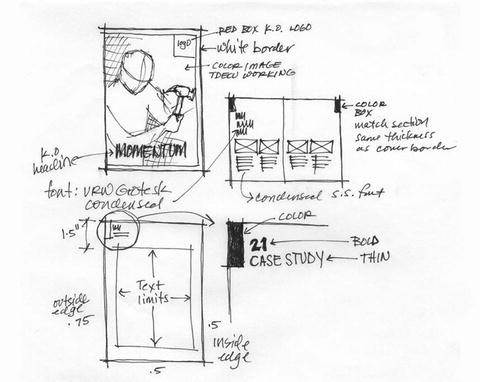 RED BOX K.O. LOGO
LOGO
white border
COLOR IMAGE
TDECU WORKING
K.O.
headline
MOMENTUM
font: URW Grotesk
condensed
COLOR
BOX
match section
same thickness
as cover border
condensed s.s. font
COLOR
1.5"
21
BOLD
CASE STUDY
THIN
Text
limits
outside
edge
.75
.5
inside
edge
.5